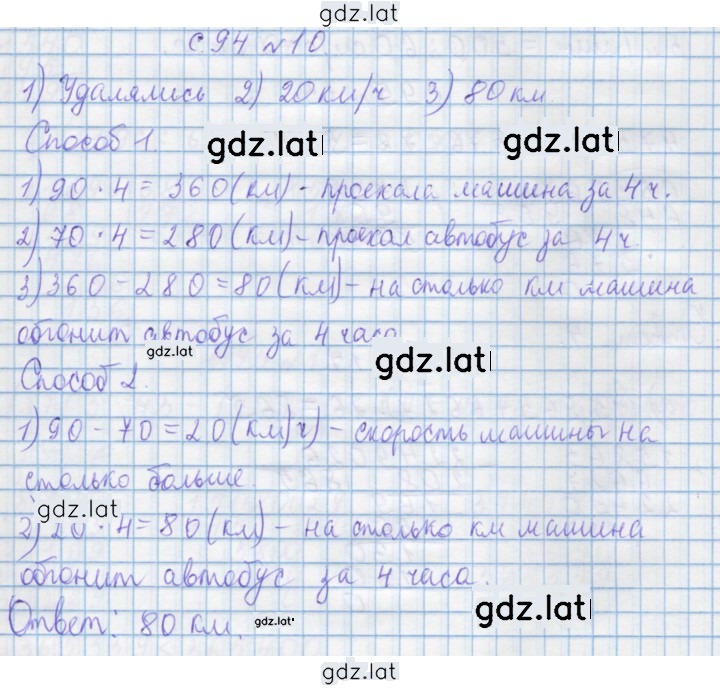 gdz.lat
с. 94 №10
1) Удалялись 2) 20 км/ч 3) 80 км.
Способ 1.
gdz.lat
gdz.lat
1) 90 · 4 = 360 (км) - проехала машина за 4 ч.
2) 70 · 4 = 280 (км) - проехал автобус за 4 ч.
3) 360 - 280 = 80 (км) - на столько км машина
обгонит автобус за 4 часа
gdz.lat
gdz.lat
Способ 2.
1) 90 - 70 = 20 (км/ч) - скорость машины на
столько больше.
gdz.lat
2) 20 · 4 = 80 (км) - на столько км машина
обгонит автобус за 4 часа.
gdz.lat
Ответ: 80 км.
gdz.lat
gdz.lat